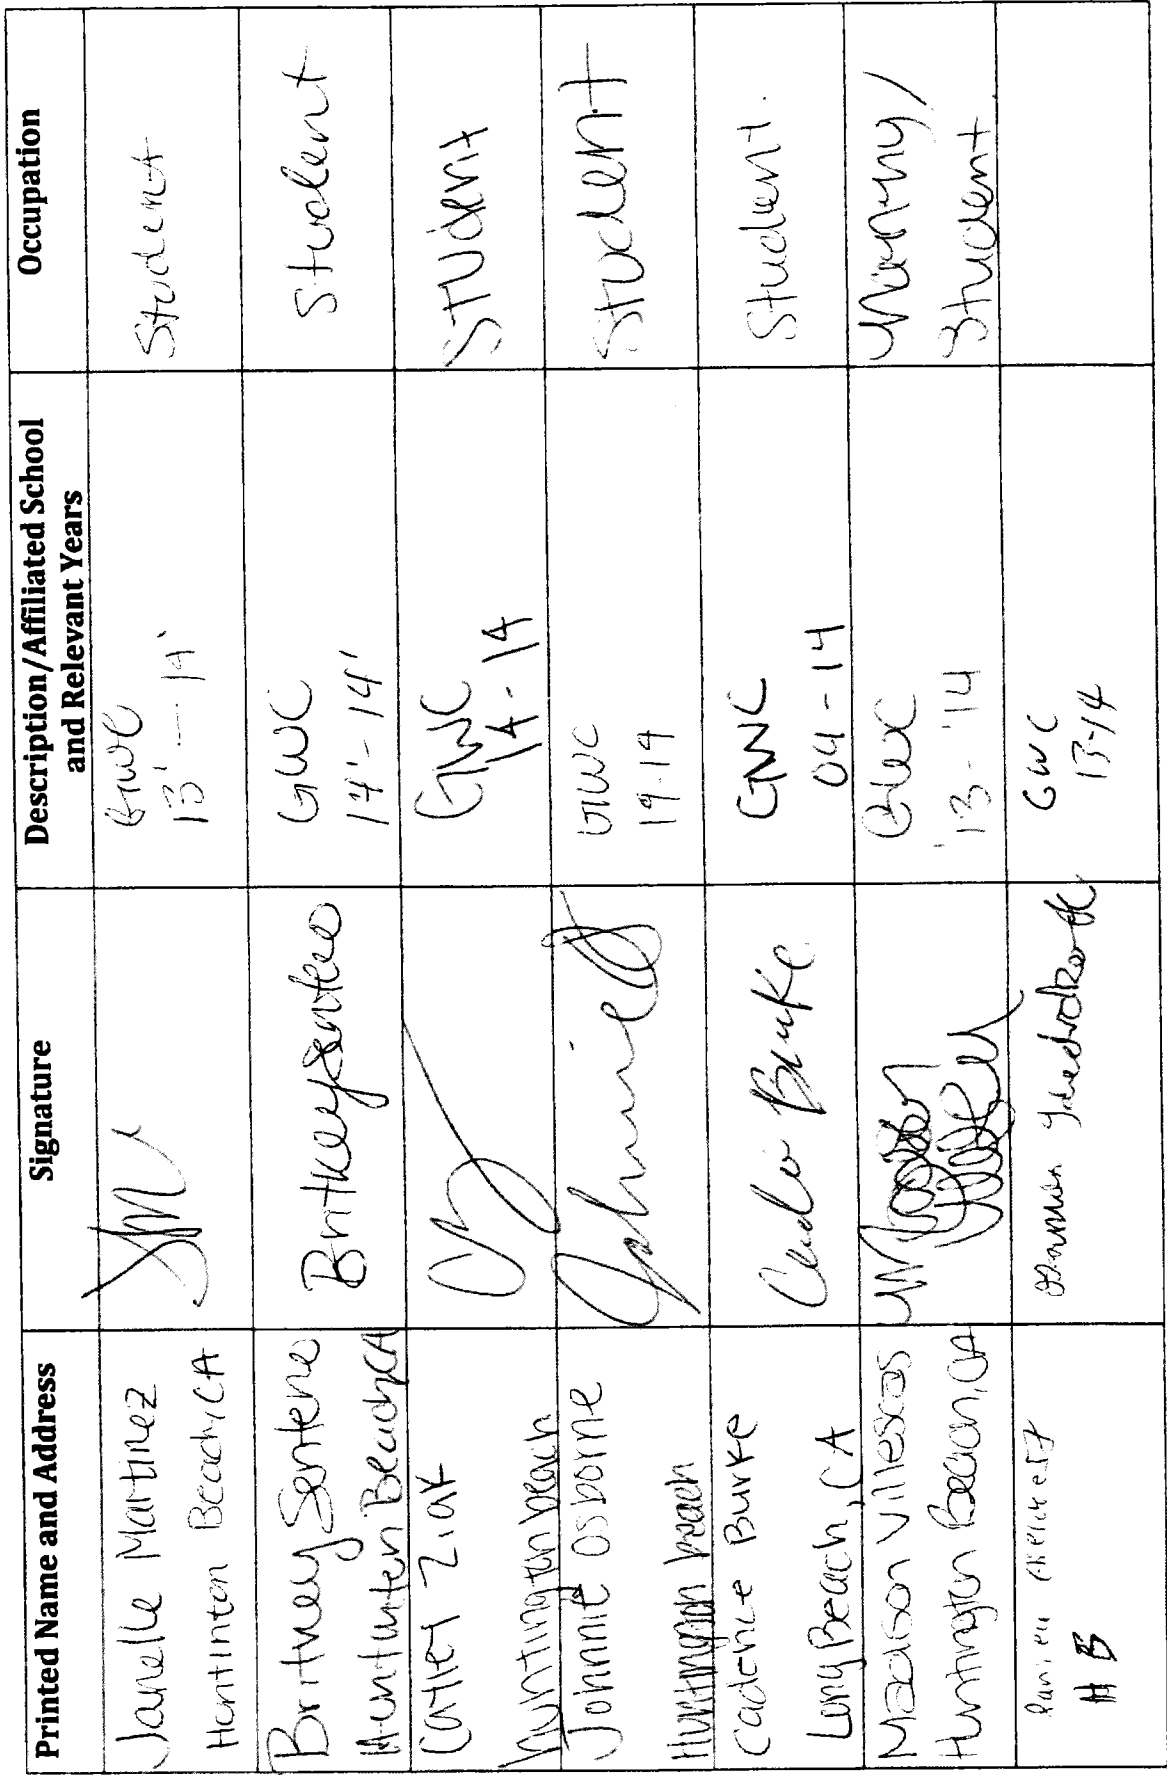 Printed Name and Address
Signature
Description/Affiliated School
and Relevant Years
Occupation
Janelle Martinez
Huntinton Beach, CA
GWC
13' - 14'
Student
Britney Senteno
Huntinten Beach, CA
Britney Senteno
GWC
14' - 14'
Student
Carley Ziak
huntington beach
GWC
14 - 14
STUdent
Johnnie Osborne
Huntington beach
Johnnie
GWC
14-14
STUdent
Cadence Burke
Long Beach, CA
Burke
GWC
04 - 14
Student.
Madison Villescas
Huntington Beach, CA
GWC
'13 - '14
Nanny/
Student
HB
GWC
13-14